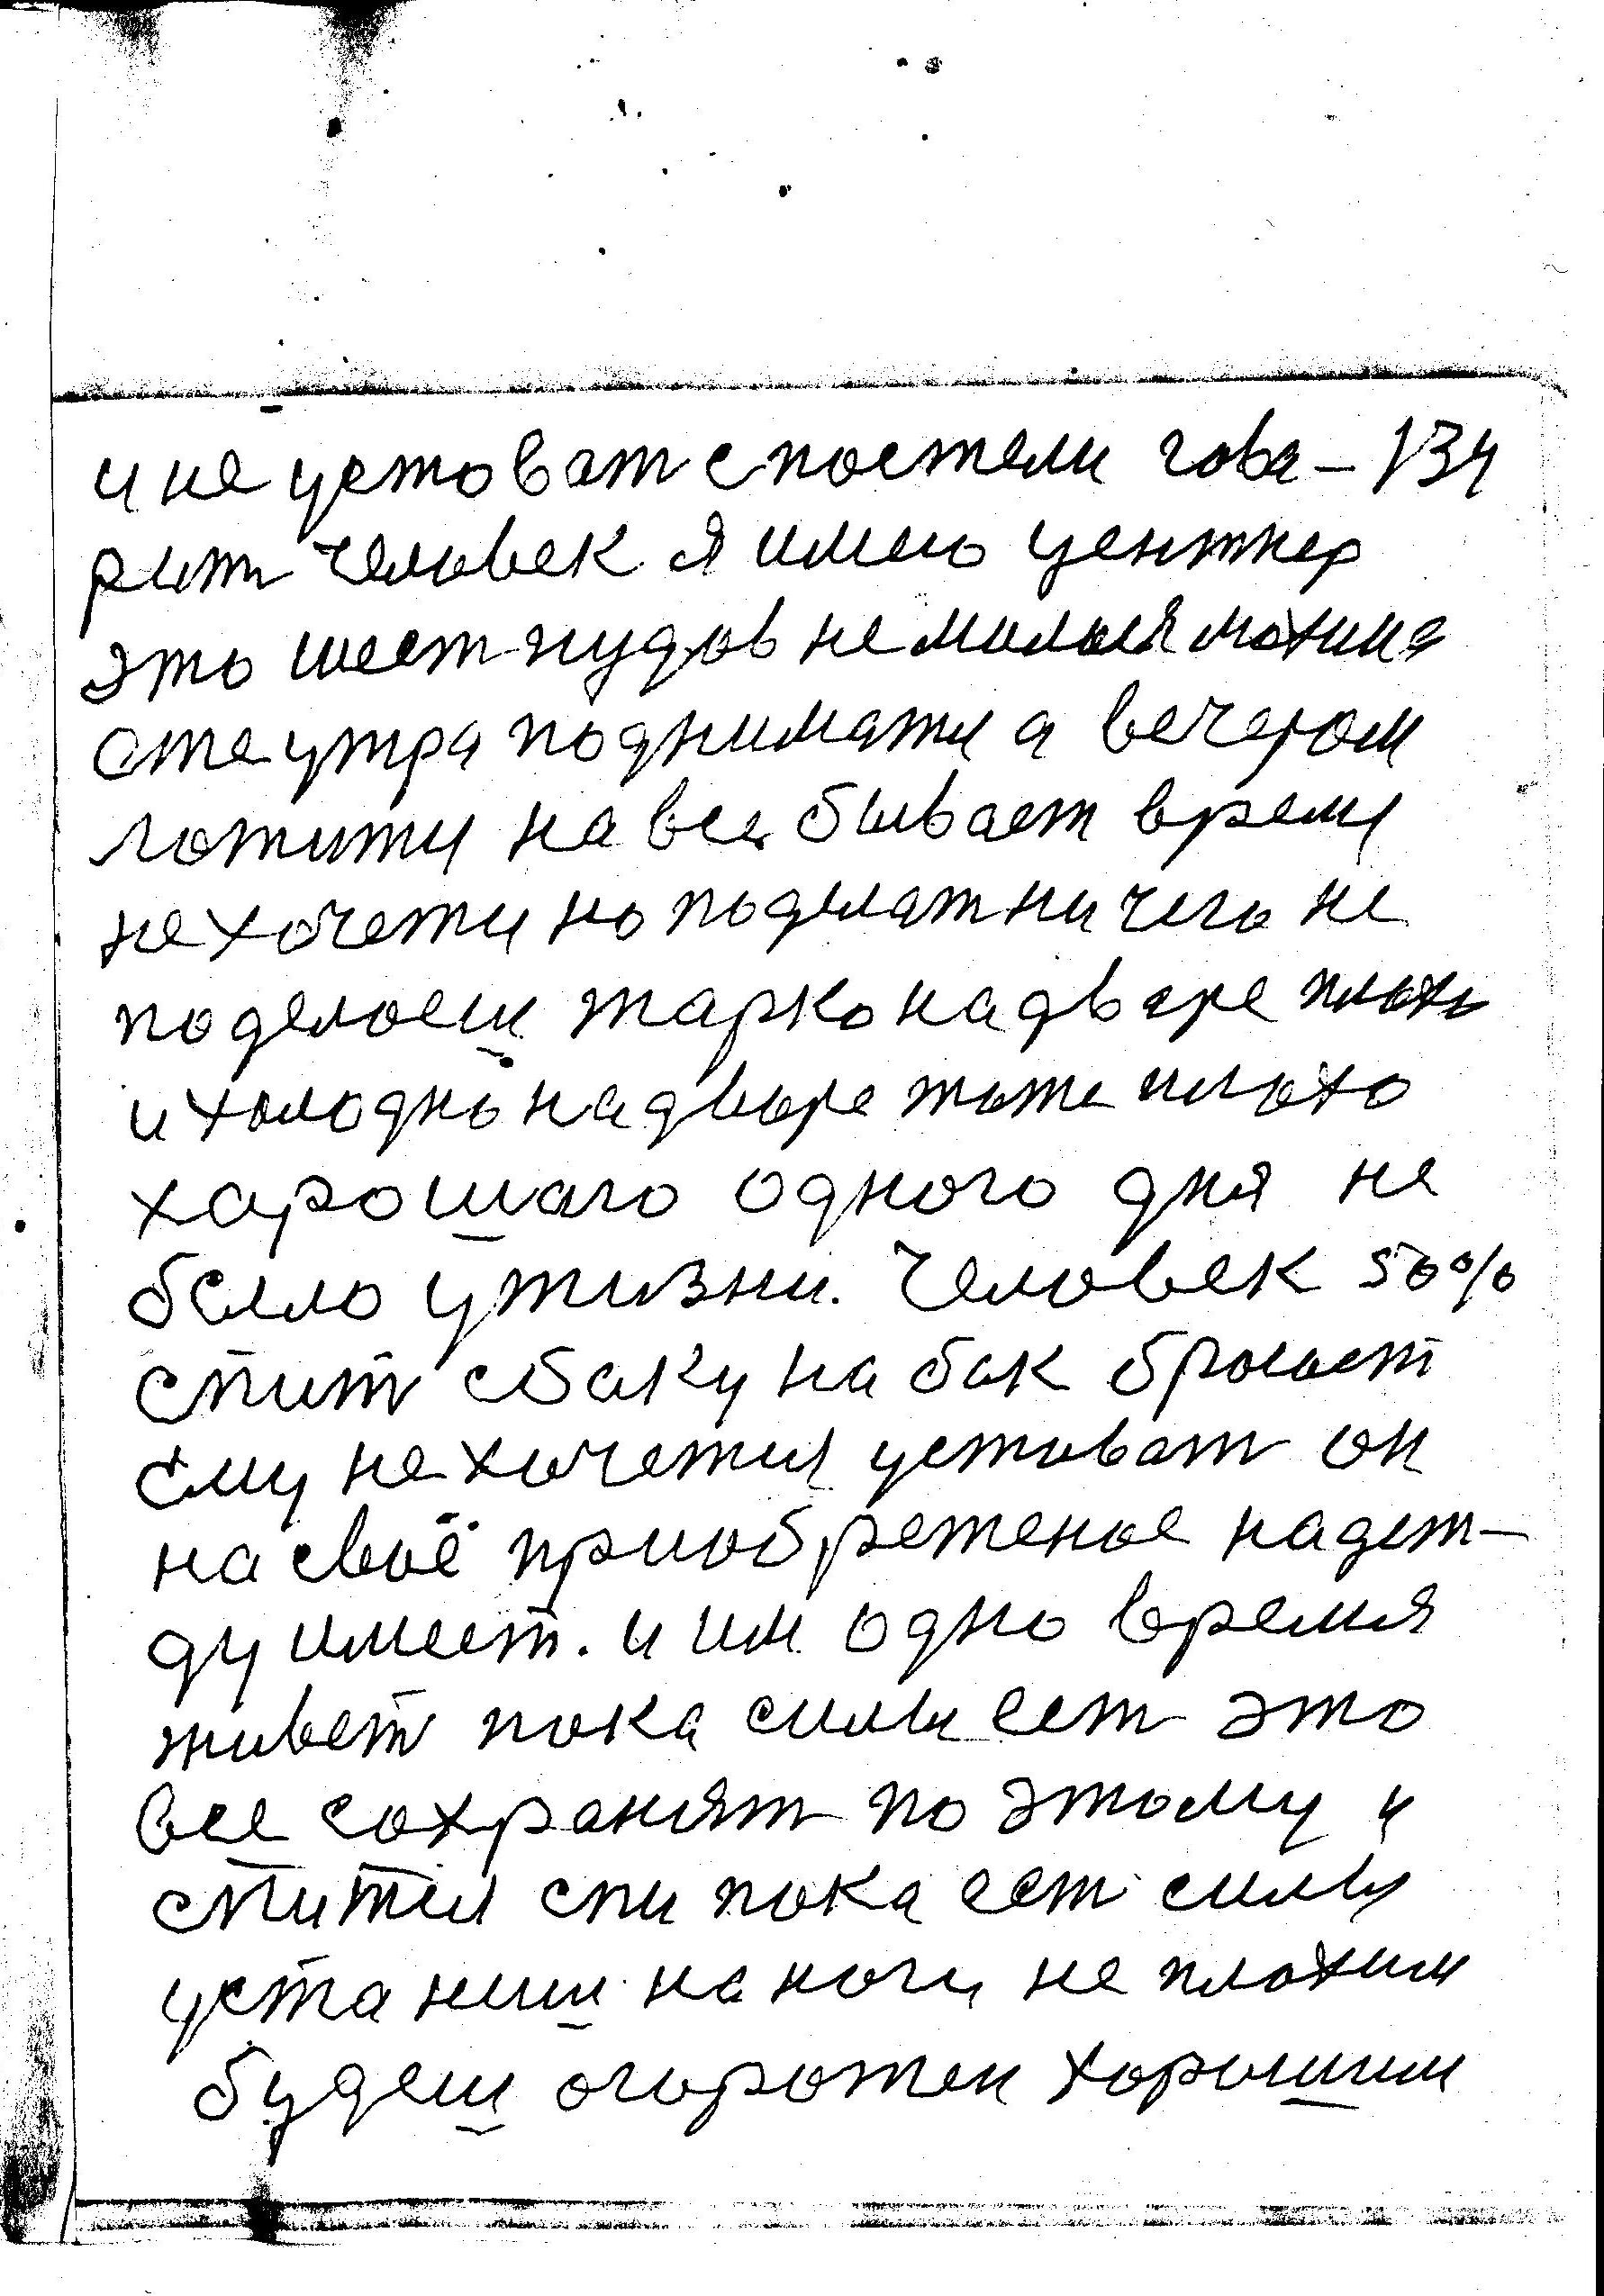 и не устават с постели гова- 134
рит человек я имею центнер
это шест пудов не малая махина
с те утра подниматя а вечером
ложитя на все бывает время
не хочетя но поделат ничего не
поделаеш жарко на дваре плохо
и холодно на дворе тоже плохо
харошаго одного дня не
было у жизни. Человек 50%
спит с баку на бак бросает
ему не хочетця устават он
на своё приобретеное надеж-
ду имеет. и им одно время
живет пока силы ест это
все сохранят по этому и
спитця спи пока ест силы
устаниш на ноги не плохим
будеш огорожен хорошим